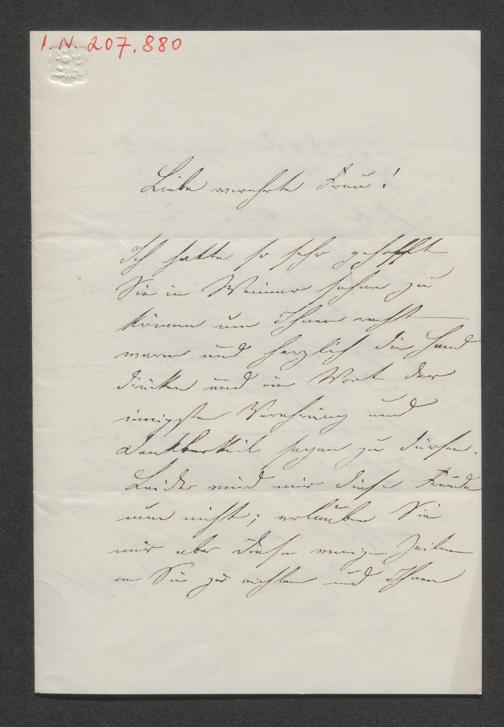 I.N. 207.880
Liebe verehrte Frau!
Ich hatte so sehr gehofft
Sie in Weimar sehen zu
können um Ihnen recht
warm und herzlich die Hand
drücken und ein Wort der
innigsten Verehrung und
Dankbarkeit sagen zu dürfen.
Leider wird mir diese Freude
nun nicht; erlauben Sie
mir aber diese wenigen Zeilen
an Sie zu richten und Ihnen